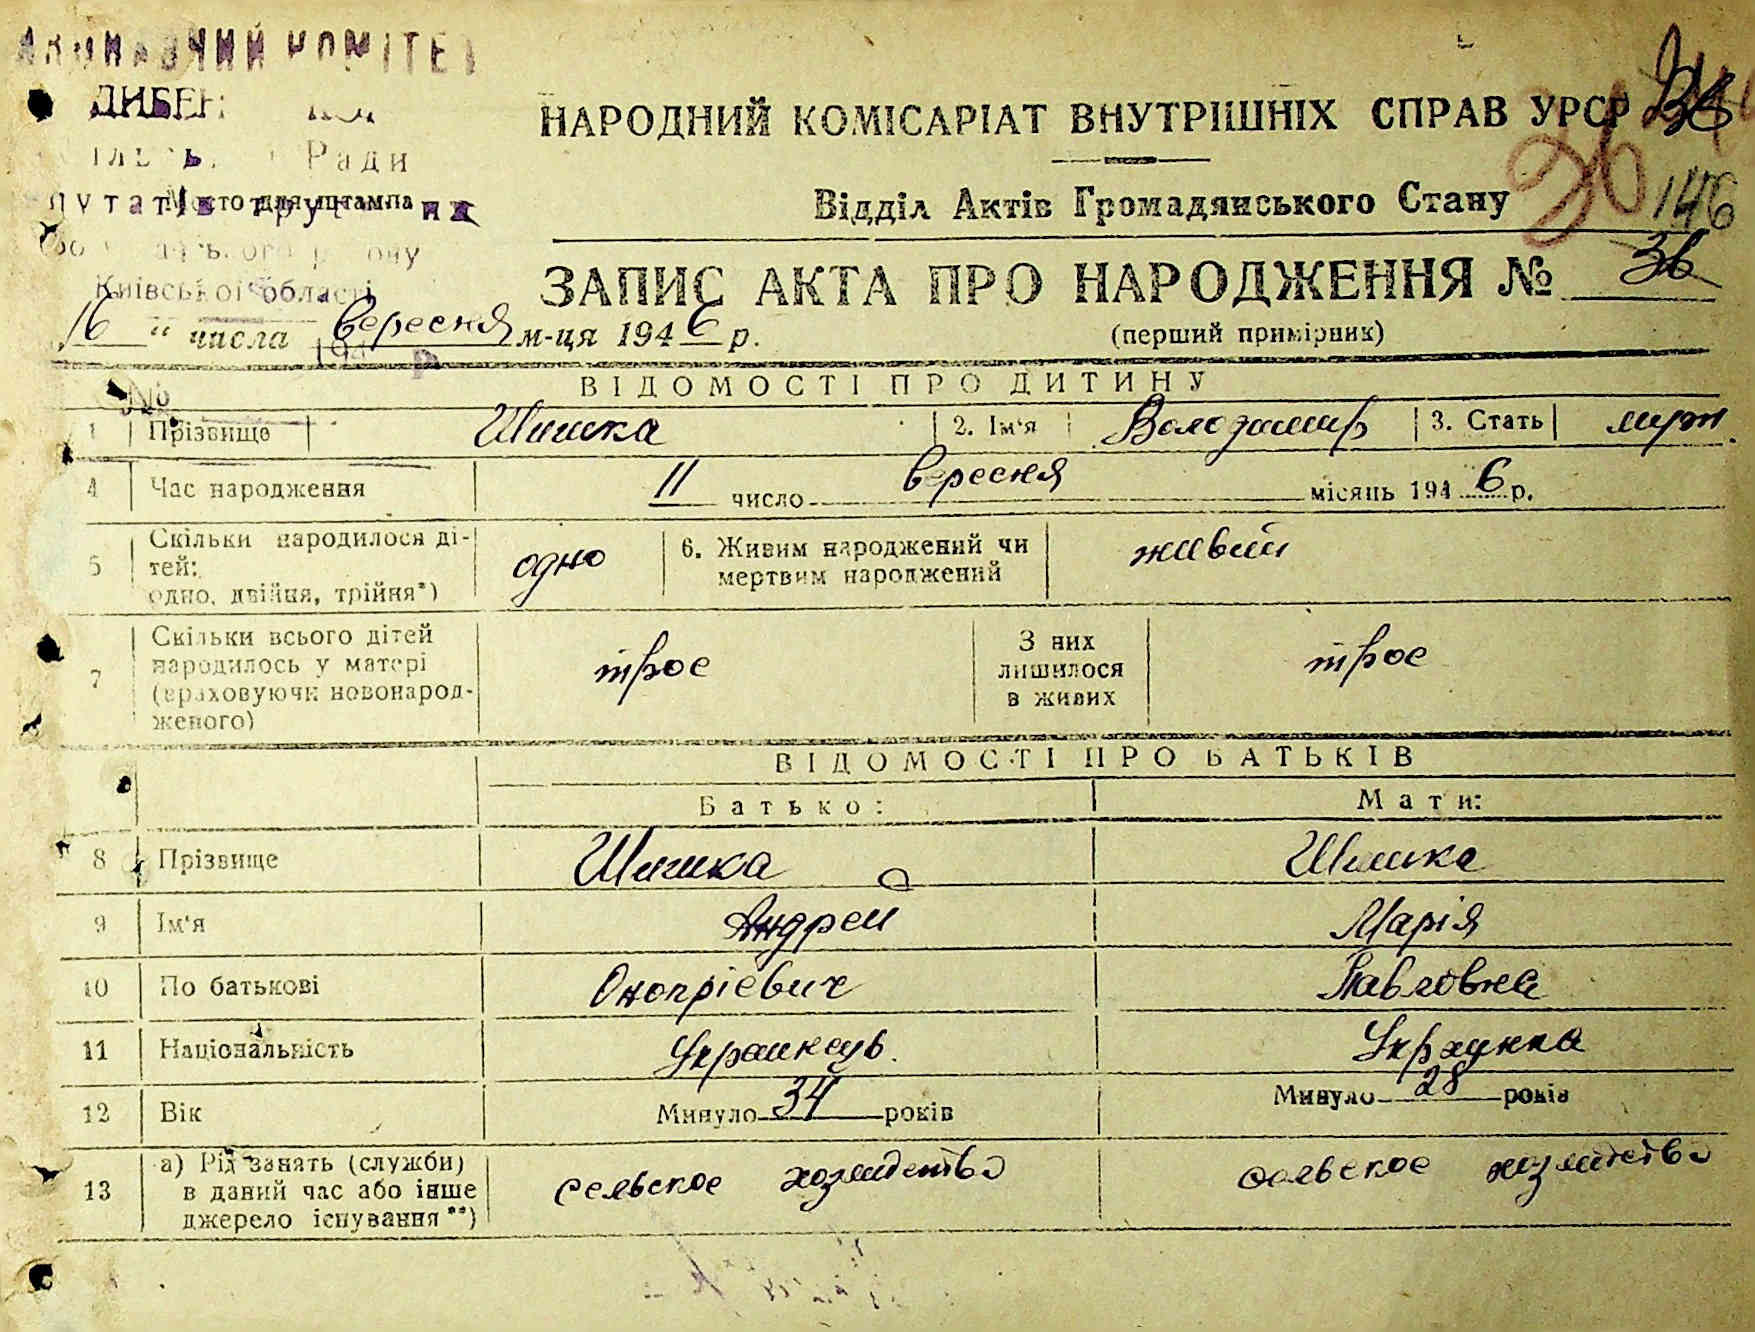 КОМІТЕТ
ДИБЕН
Ради
Місто для штампа
Київської області
НАРОДНИЙ КОМІСАРІАТ ВНУТРІШНІХ СПРАВ УРСР
146
Відділ Актів Громадянського Стану
ЗАПИС АКТА ПРО НАРОДЖЕННЯ № 36
(перший примірник)
16 " числа вересня м-ця 1946 р.
№
ВІДОМОСТІ ПРО ДИТИНУ
1 Прізвище Шишка 2. Ім'я Володимир 3. Стать муж.
4 Час народження 11 число вересня місяць 1946 р.
5 Скільки народилося ді-
тей:
одно, двійня, трійня*) одно 6. Живим народжений чи
мертвим народжений живий
7 Скільки всього дітей
народилось у матері
(враховуючи новонарод-
женого) троє З них
лишилося
в живих троє
ВІДОМОСТІ ПРО БАТЬКІВ
Батько: Мати:
8 Прізвище Шишка Шишка
9 Ім'я Андрей Марія
10 По батькові Онопріевич Павловна
11 Національність
12 Вік Минуло 34 років Минуло 28 років
13 а) Рід занять (служби)
в даний час або інше
джерело існування**) сельское хозяйство сельское хозяйство